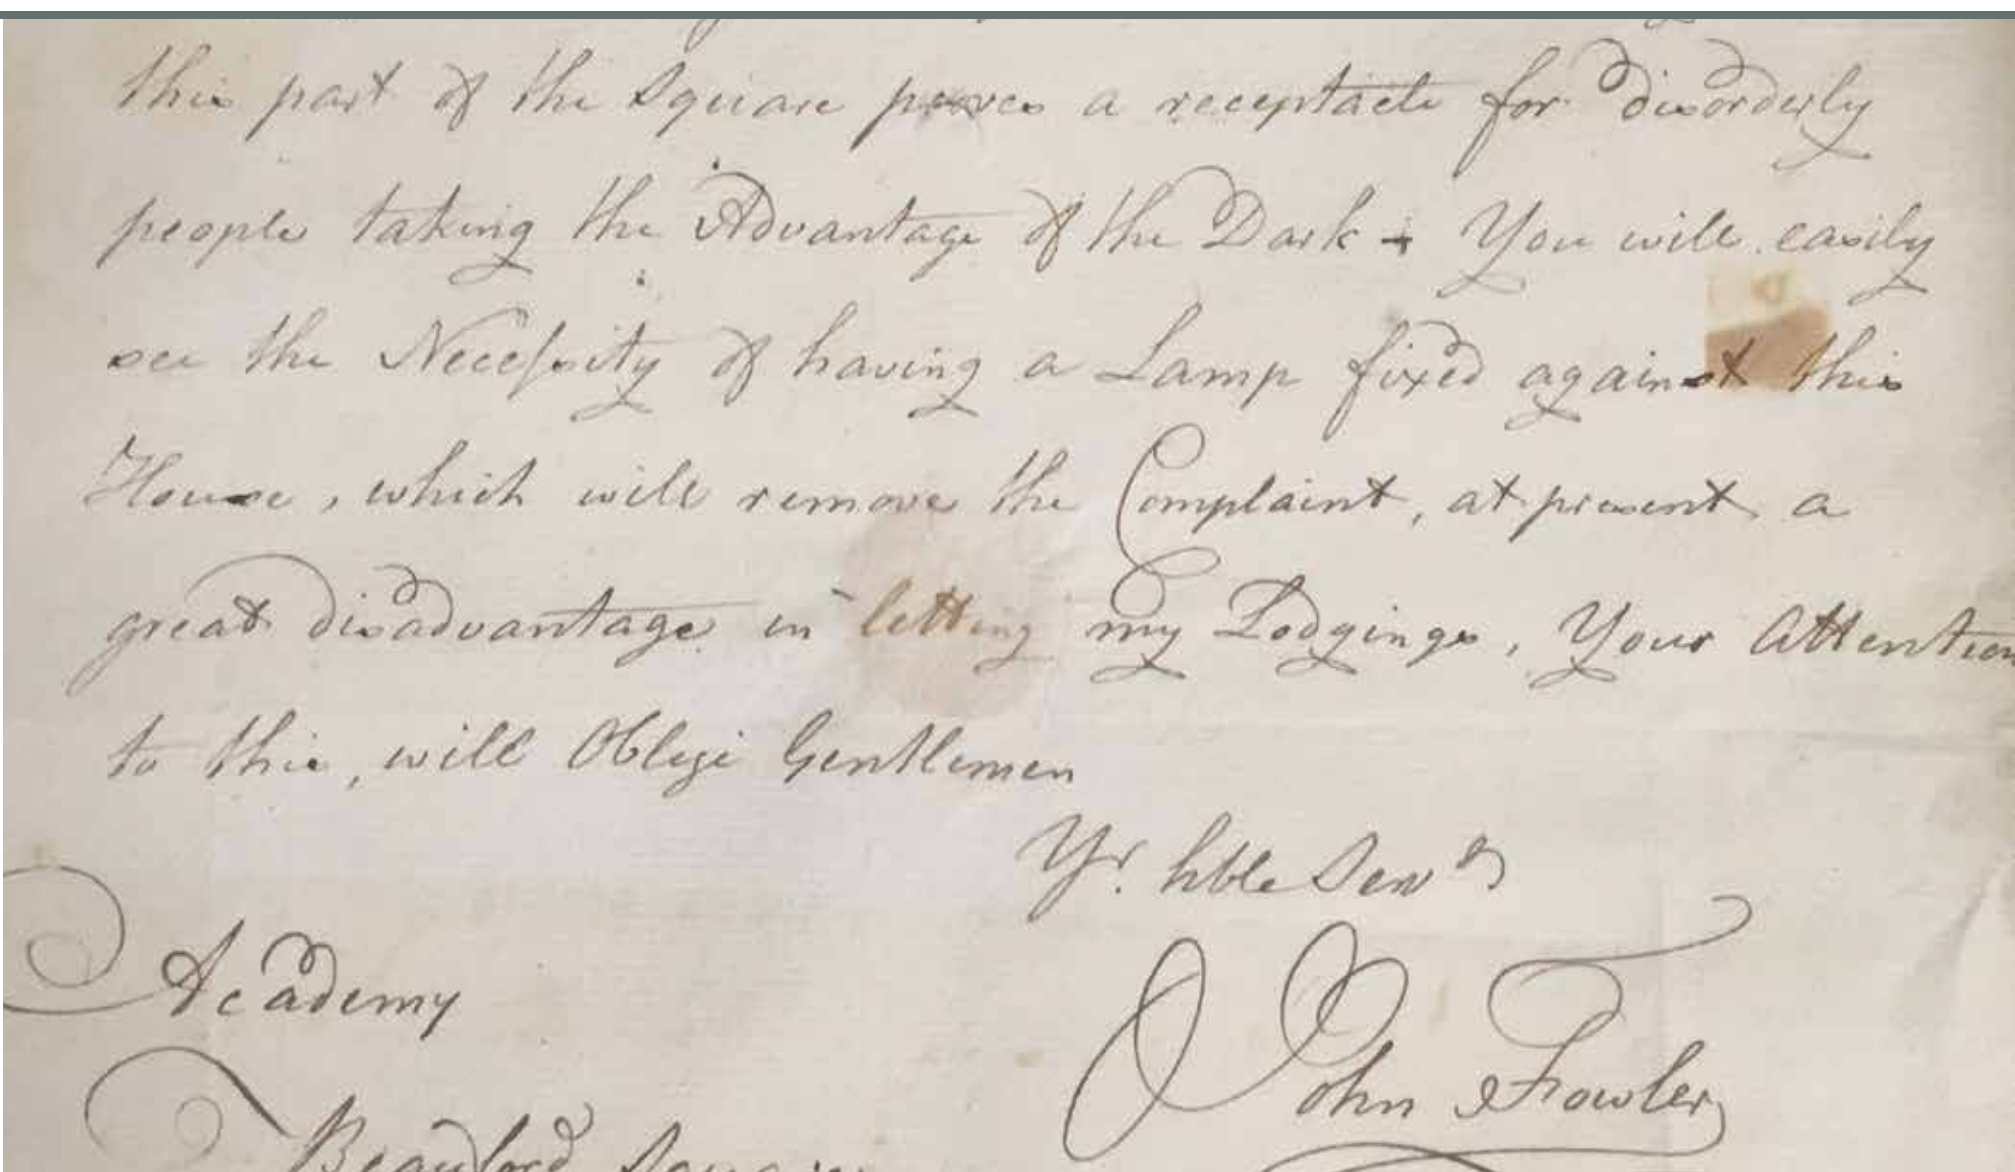 this part of the Square proves a receptacle for disorderly
people taking the Advantage of the Dark - You will easily
see the Necessity of having a Lamp fixed against this
House, which will remove the Complaint, at present a
great disadvantage in letting my Lodgings, Your Attention
to this, will Oblige Gentlemen
Yr. hble Servt
Academy
John Fowler
Beauford Square